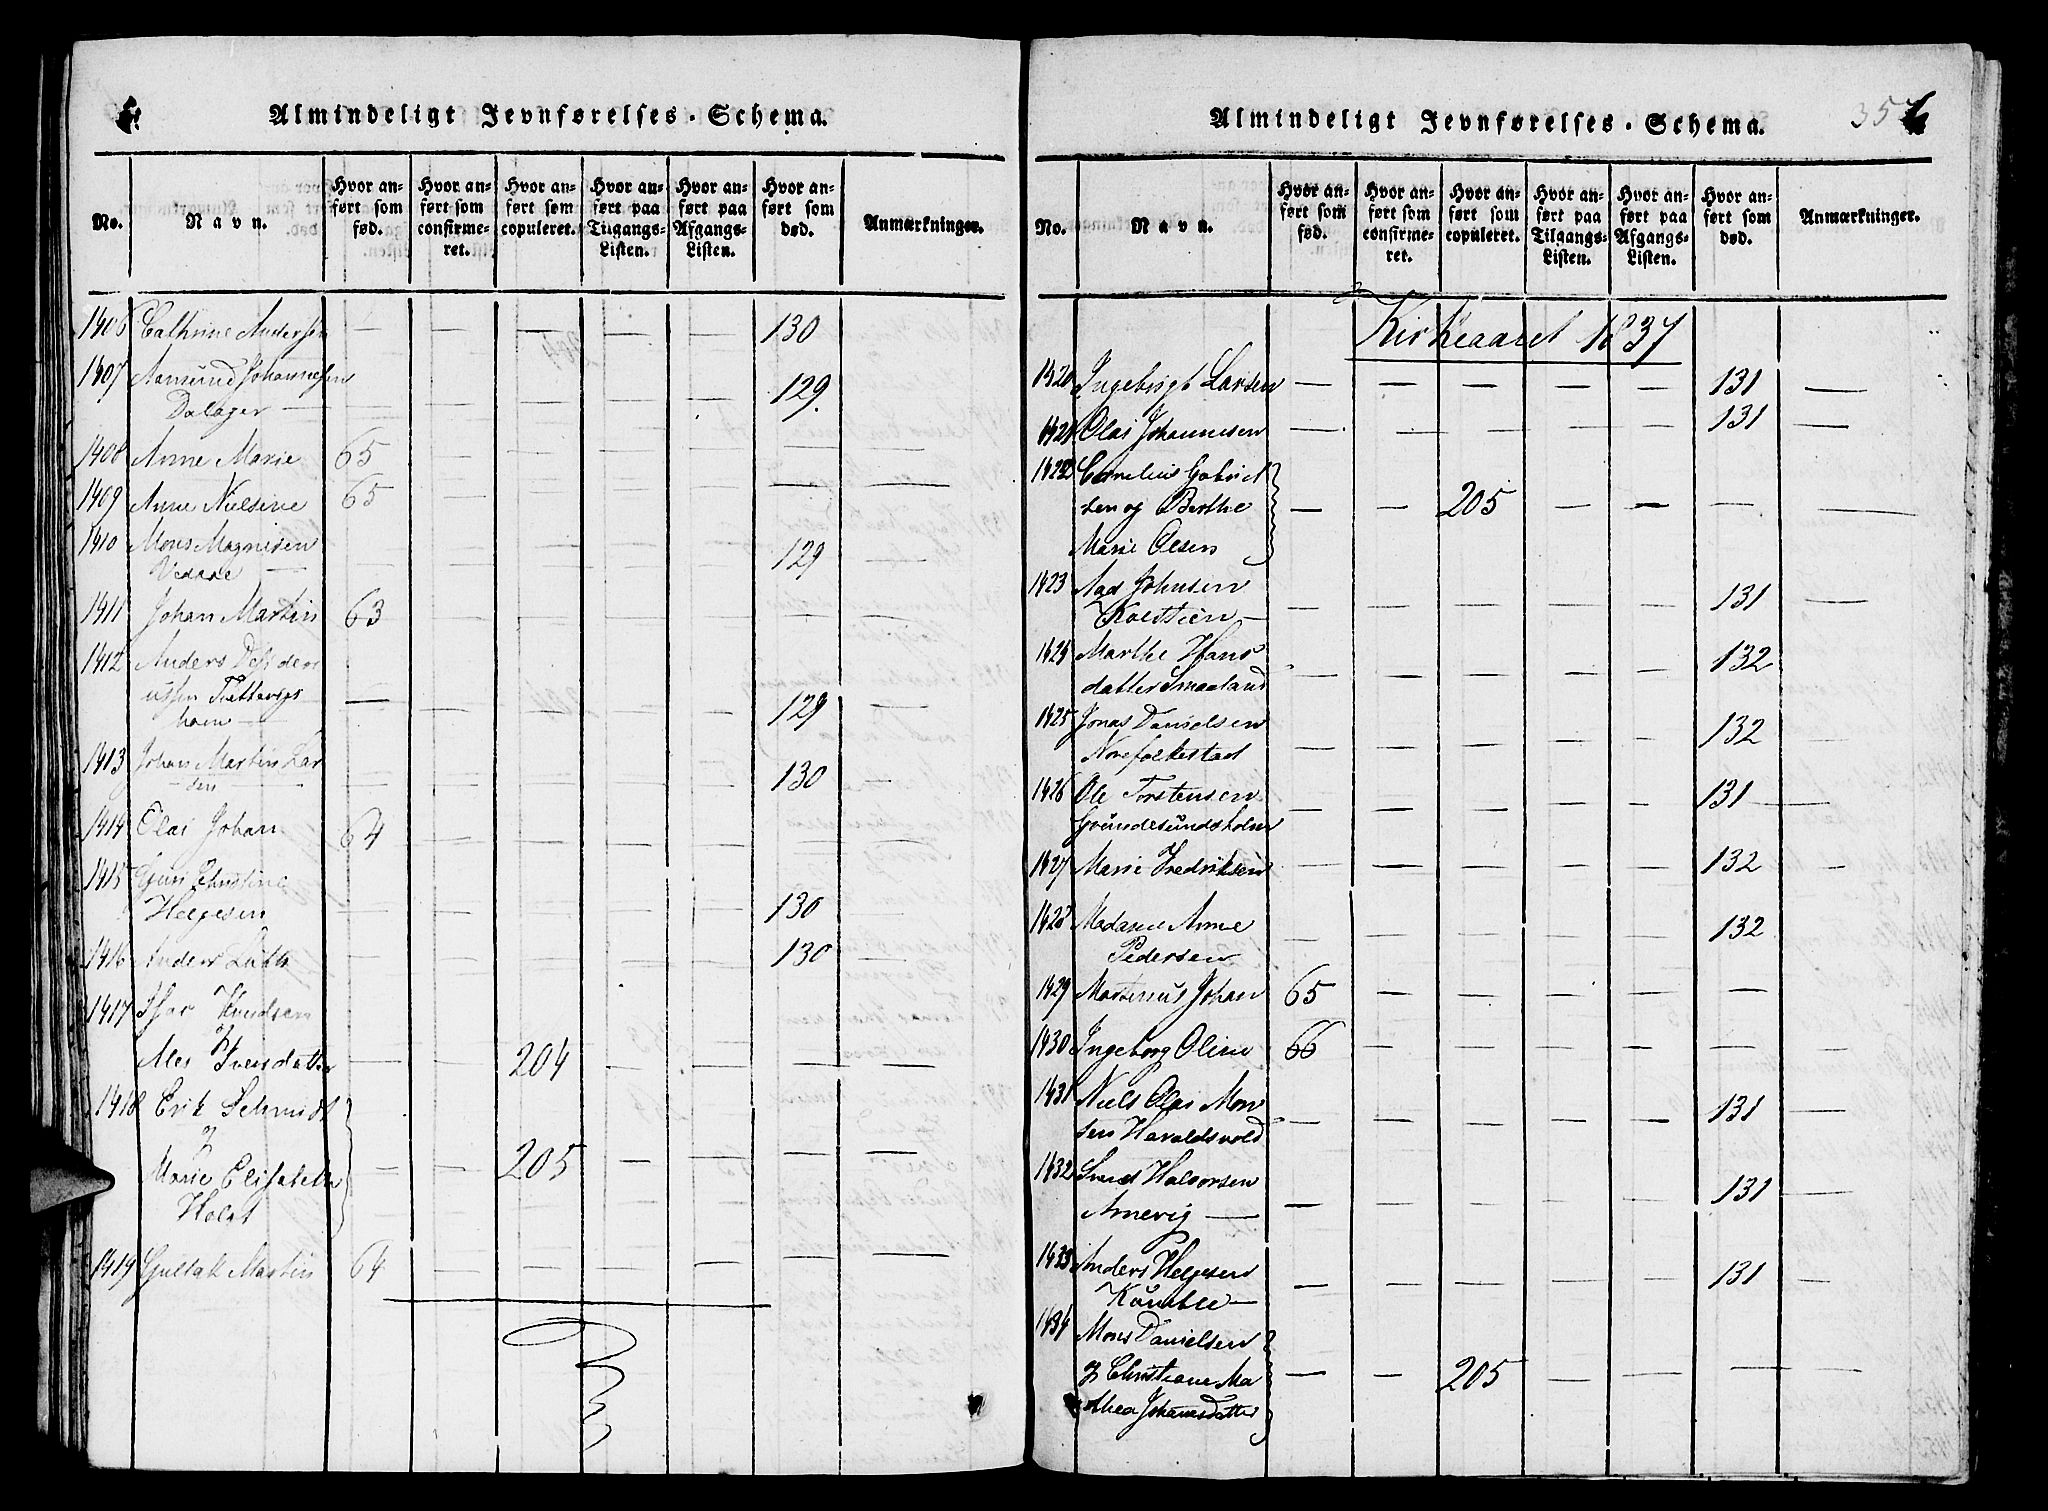 Almindeligt Jevnførelses-Schema.
No.
Navn.
Hvor anført som fød.
Hvor anført som confirmeret.
Hvor anført som copuleret.
Hvor anført paa Tilgangs-Listen.
Hvor anført paa Afgangs-Listen.
Hvor anført som død.
Anmærkninger.
1406 Cathrine Andersen — — — — — 130
1407 Aamund Johannesen
Dalager — — — — — — 129
1408 Anne Marie 65 — — — — — —
1409 Anne Nielsine 65 — — — — — —
1410 Mons Magnesen
— 129 —
1411 Johan Martin 63 — — — — — —
1412 Anders
129 —
1413 Johan Martin Lar
sen — — — — — — 130 —
1414 Olai Johan 64 — — — — — —
1415 Guri Christine
Helgesen — — — — — 130 —
1416 Anders — — — — — 130 —
1417 Ifar Knudsen
og
Ales Iversdatter — — 204 — — — —
1418 Erik Schmidt
og
Marie Elisabeth — — 205 — — — —
Holst
1419 Gullak Martin 64 — — — — — —
Almindeligt Jevnførelses-Schema.
357
No.
Navn.
Hvor anført som fød.
Hvor anført som confirmeret.
Hvor anført som copuleret.
Hvor anført paa Tilgangs-Listen.
Hvor anført paa Afgangs-Listen.
Hvor anført som død.
Anmærkninger.
Kirkeaaret 1837
1420 Ingebrigt Larsen — — — — — 131 —
1421 Olai Johannesen — — — — — 131 —
1422 Cornelius Gabriel
sen og Berthe — — 205 — — — —
Marie Olsen
1423 Aad Johnsen
— — — — — 131 —
1424 Marthe Hans
datter Smaaland — — — — — 132 —
1425 Jonas Danielsen
Norefolkestad — — — — — 132 —
1426 Ole Torstensen
Grundesundsholm — — — — — 131 —
1427 Marie Fredriksen — — — — — 132 —
1428 Madame Anne
Pedersen — — — — — 132 —
1429 Martinus Johan 65 — — — — — —
1430 Ingeborg Oline 66 — — — — — —
1431 Niels Olai Mon
sen Haraldsvold — — — — — 131 —
1432 Svend Halvorsen
Amevig — — — — — — 131 —
1433 Anders Helgesen
— — — — — 131 —
1434 Mons Danielsen
og Christiane Ma — — 205 — — — —
thea Johansdatter